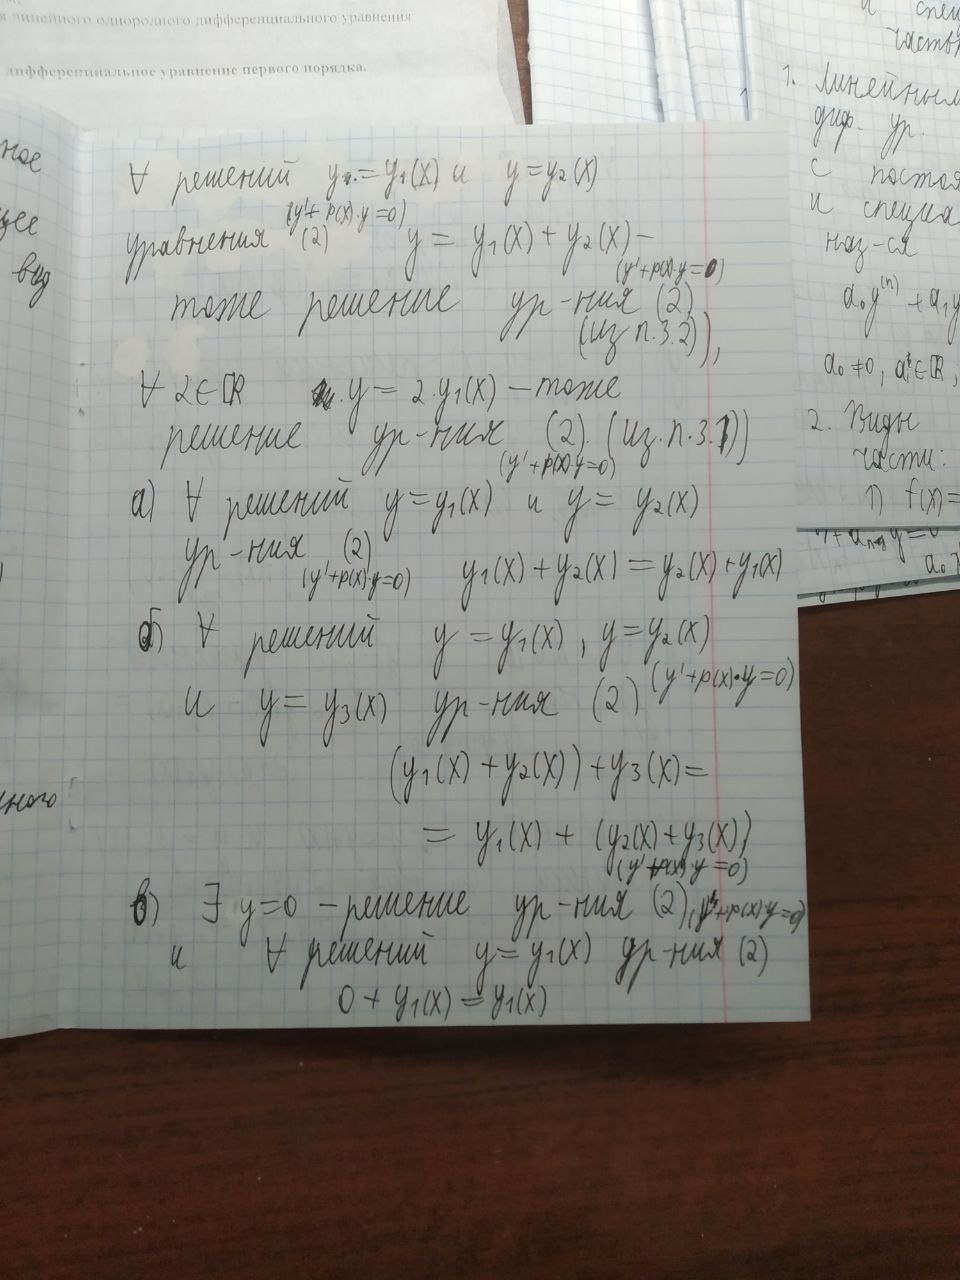 я линейного однородного дифференциального уравнения
дифференциальное уравнение первого порядка.
ное
щее
вид
ного
∀ решений y=y₁(x) и y=y₂(x)
(y'+p(x)·y=0)
уравнения (2) y = y₁(x) + y₂(x) –
(y'+p(x)·y=0)
тоже решение ур-ния (2)
(из п.3.2)),
∀ α∈ℝ y = α·y₁(x) – тоже
решение ур-ния (2). (из п.3.1))
(y'+p(x)·y=0)
а) ∀ решений y=y₁(x) и y = y₂(x)
ур-ния (2)
(y'+p(x)·y=0) y₁(x) + y₂(x) = y₂(x) + y₁(x)
б) ∀ решений y = y₁(x), y=y₂(x)
и y = y₃(x) ур-ния (2) (y'+p(x)·y=0)
(y₁(x) + y₂(x)) + y₃(x) =
= y₁(x) + (y₂(x)+y₃(x))
(y'+p(x)·y=0)
в) ∃ y=0 – решение ур-ния (2), (y'+p(x)·y=0)
и ∀ решений y = y₁(x) ур-ния (2)
0 + y₁(x) = y₁(x)
и спец
части
1. Линейным
диф. ур.
с постоя
и специа
наз-ся
a₀y⁽ⁿ⁾ + a₁y
a₀ ≠0, aᵢ∈ℝ,
2. Виды
части:
1) f(x)=